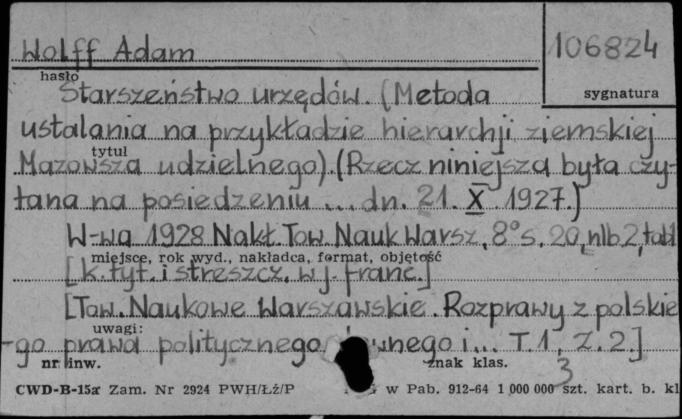 Wolff Adam
106824
hasło
sygnatura
Starszeństwo urzędów. (Metoda
ustalania na przykładzie hierarchji ziemskiej
tytuł
Mazowsza udzielnego). (Rzecz niniejsza była czy-
tana na posiedzeniu ... dn. 21. X. 1927.)
W-wa 1928 Nakł. Tow. Nauk Warsz, 8° s. 20, nlb. 2, tabl
miejsce, rok wyd., nakładca, format, objętość
[k. tyt. i streszcz. w j. franc.]
[Tow. Naukowe Warszawskie. Rozprawy z polskie
uwagi:
-go prawa politycznego, i... T. 1, Z. 2.]
nr inw.
znak klas.
3
CWD-B-15a Zam. Nr 2924 PWH/Łż/P w Pab. 912-64 1 000 000 szt. kart. b. kl